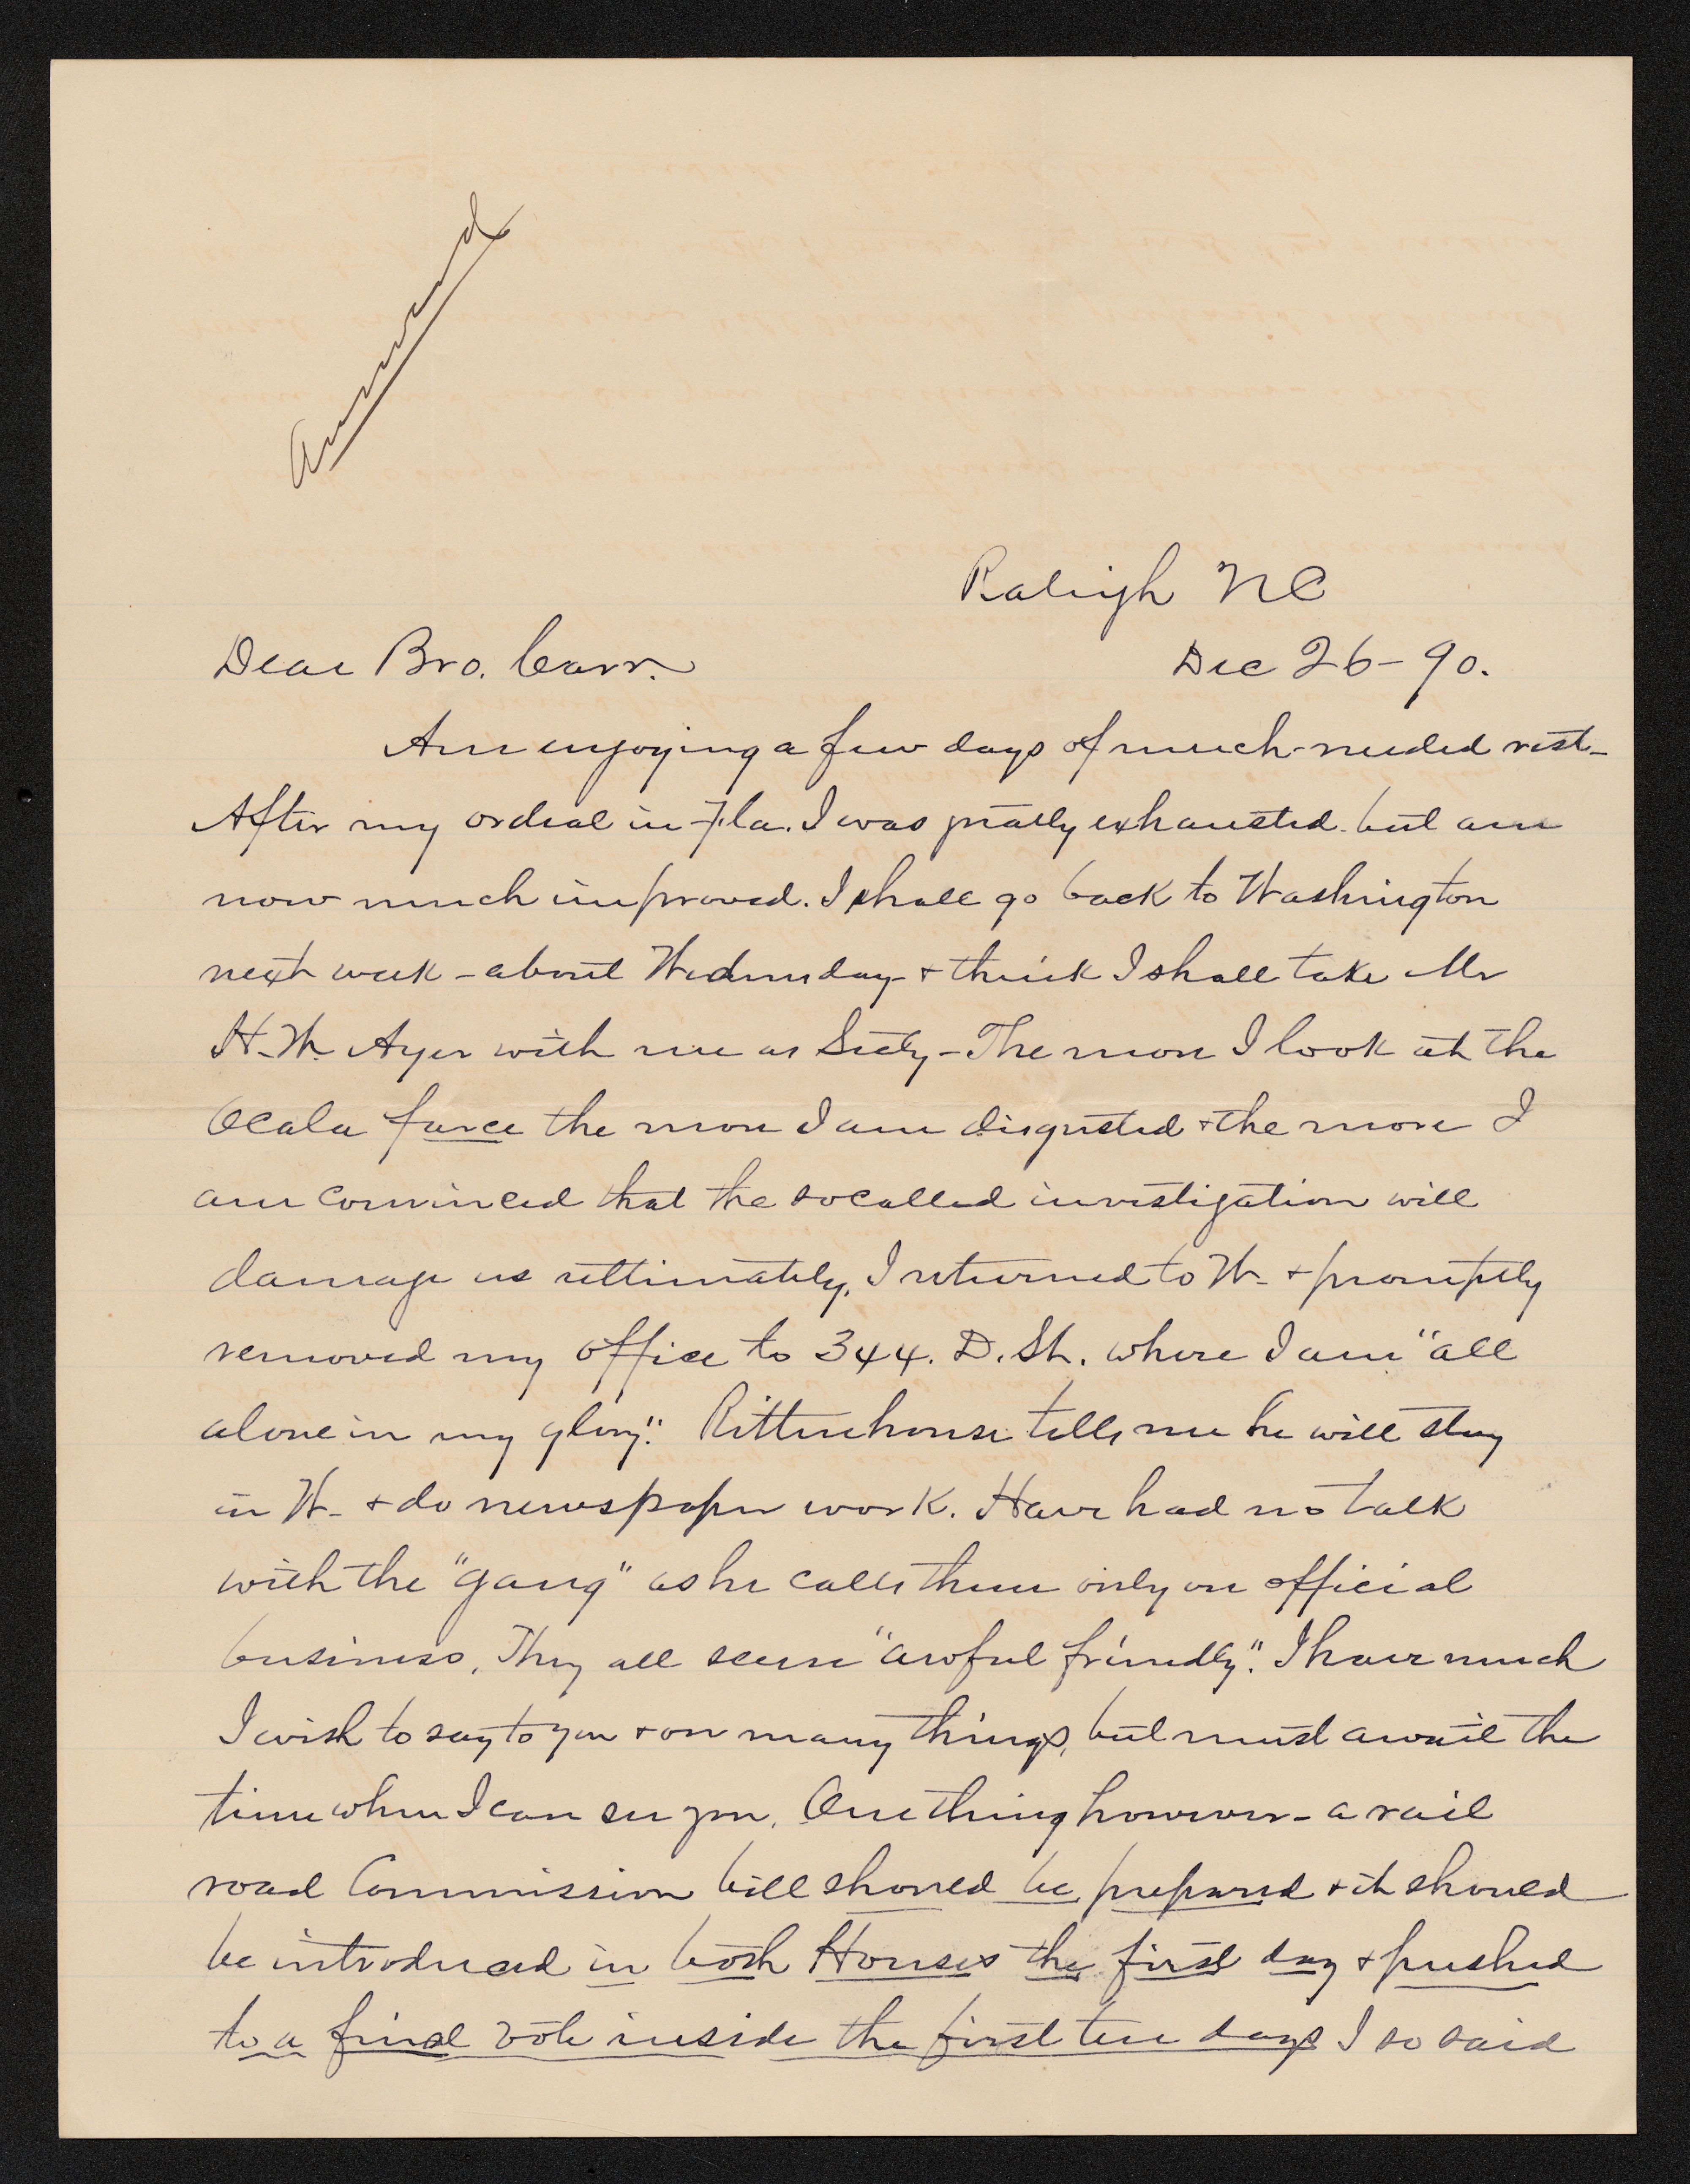 Answered
Raleigh NC
Dear Bro. Carr. Dec 26-90.
Am enjoying a few days of much-needed rest-
After my ordeal in Fla. I was greatly exhausted. but am
now much improved. I shall go back to Washington
next week - about Wednesday + think I shall take Mr
H. W. Ayer with me as Secty - The more I look at the
Ocala farce the more I am disgusted + the more I
am convinced that the socalled investigation will
damage us ultimately, I returned to W- + promptly
removed my office to 344. D. St. where I am "all
alone in my glory." Rittenhouse tells me he will stay
in W- + do newspaper work. Have had no talk
with the "gang" as he calls them only on official
business, They all seem "awful friendly." I have much
I wish to say to you + on many things, but must await the
time when I can see you. One thing however - a rail
road Commission bill should be prepared + it should
be introduced in both Houses the first day + pushed
to a final vote inside the first ten days I so said